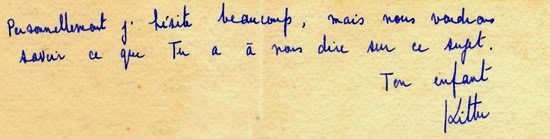 Personnellement j. hésite beaucoup, mais nous voudrions
savoir ce que Tu a à nous dire sur ce sujet.
Ton enfant